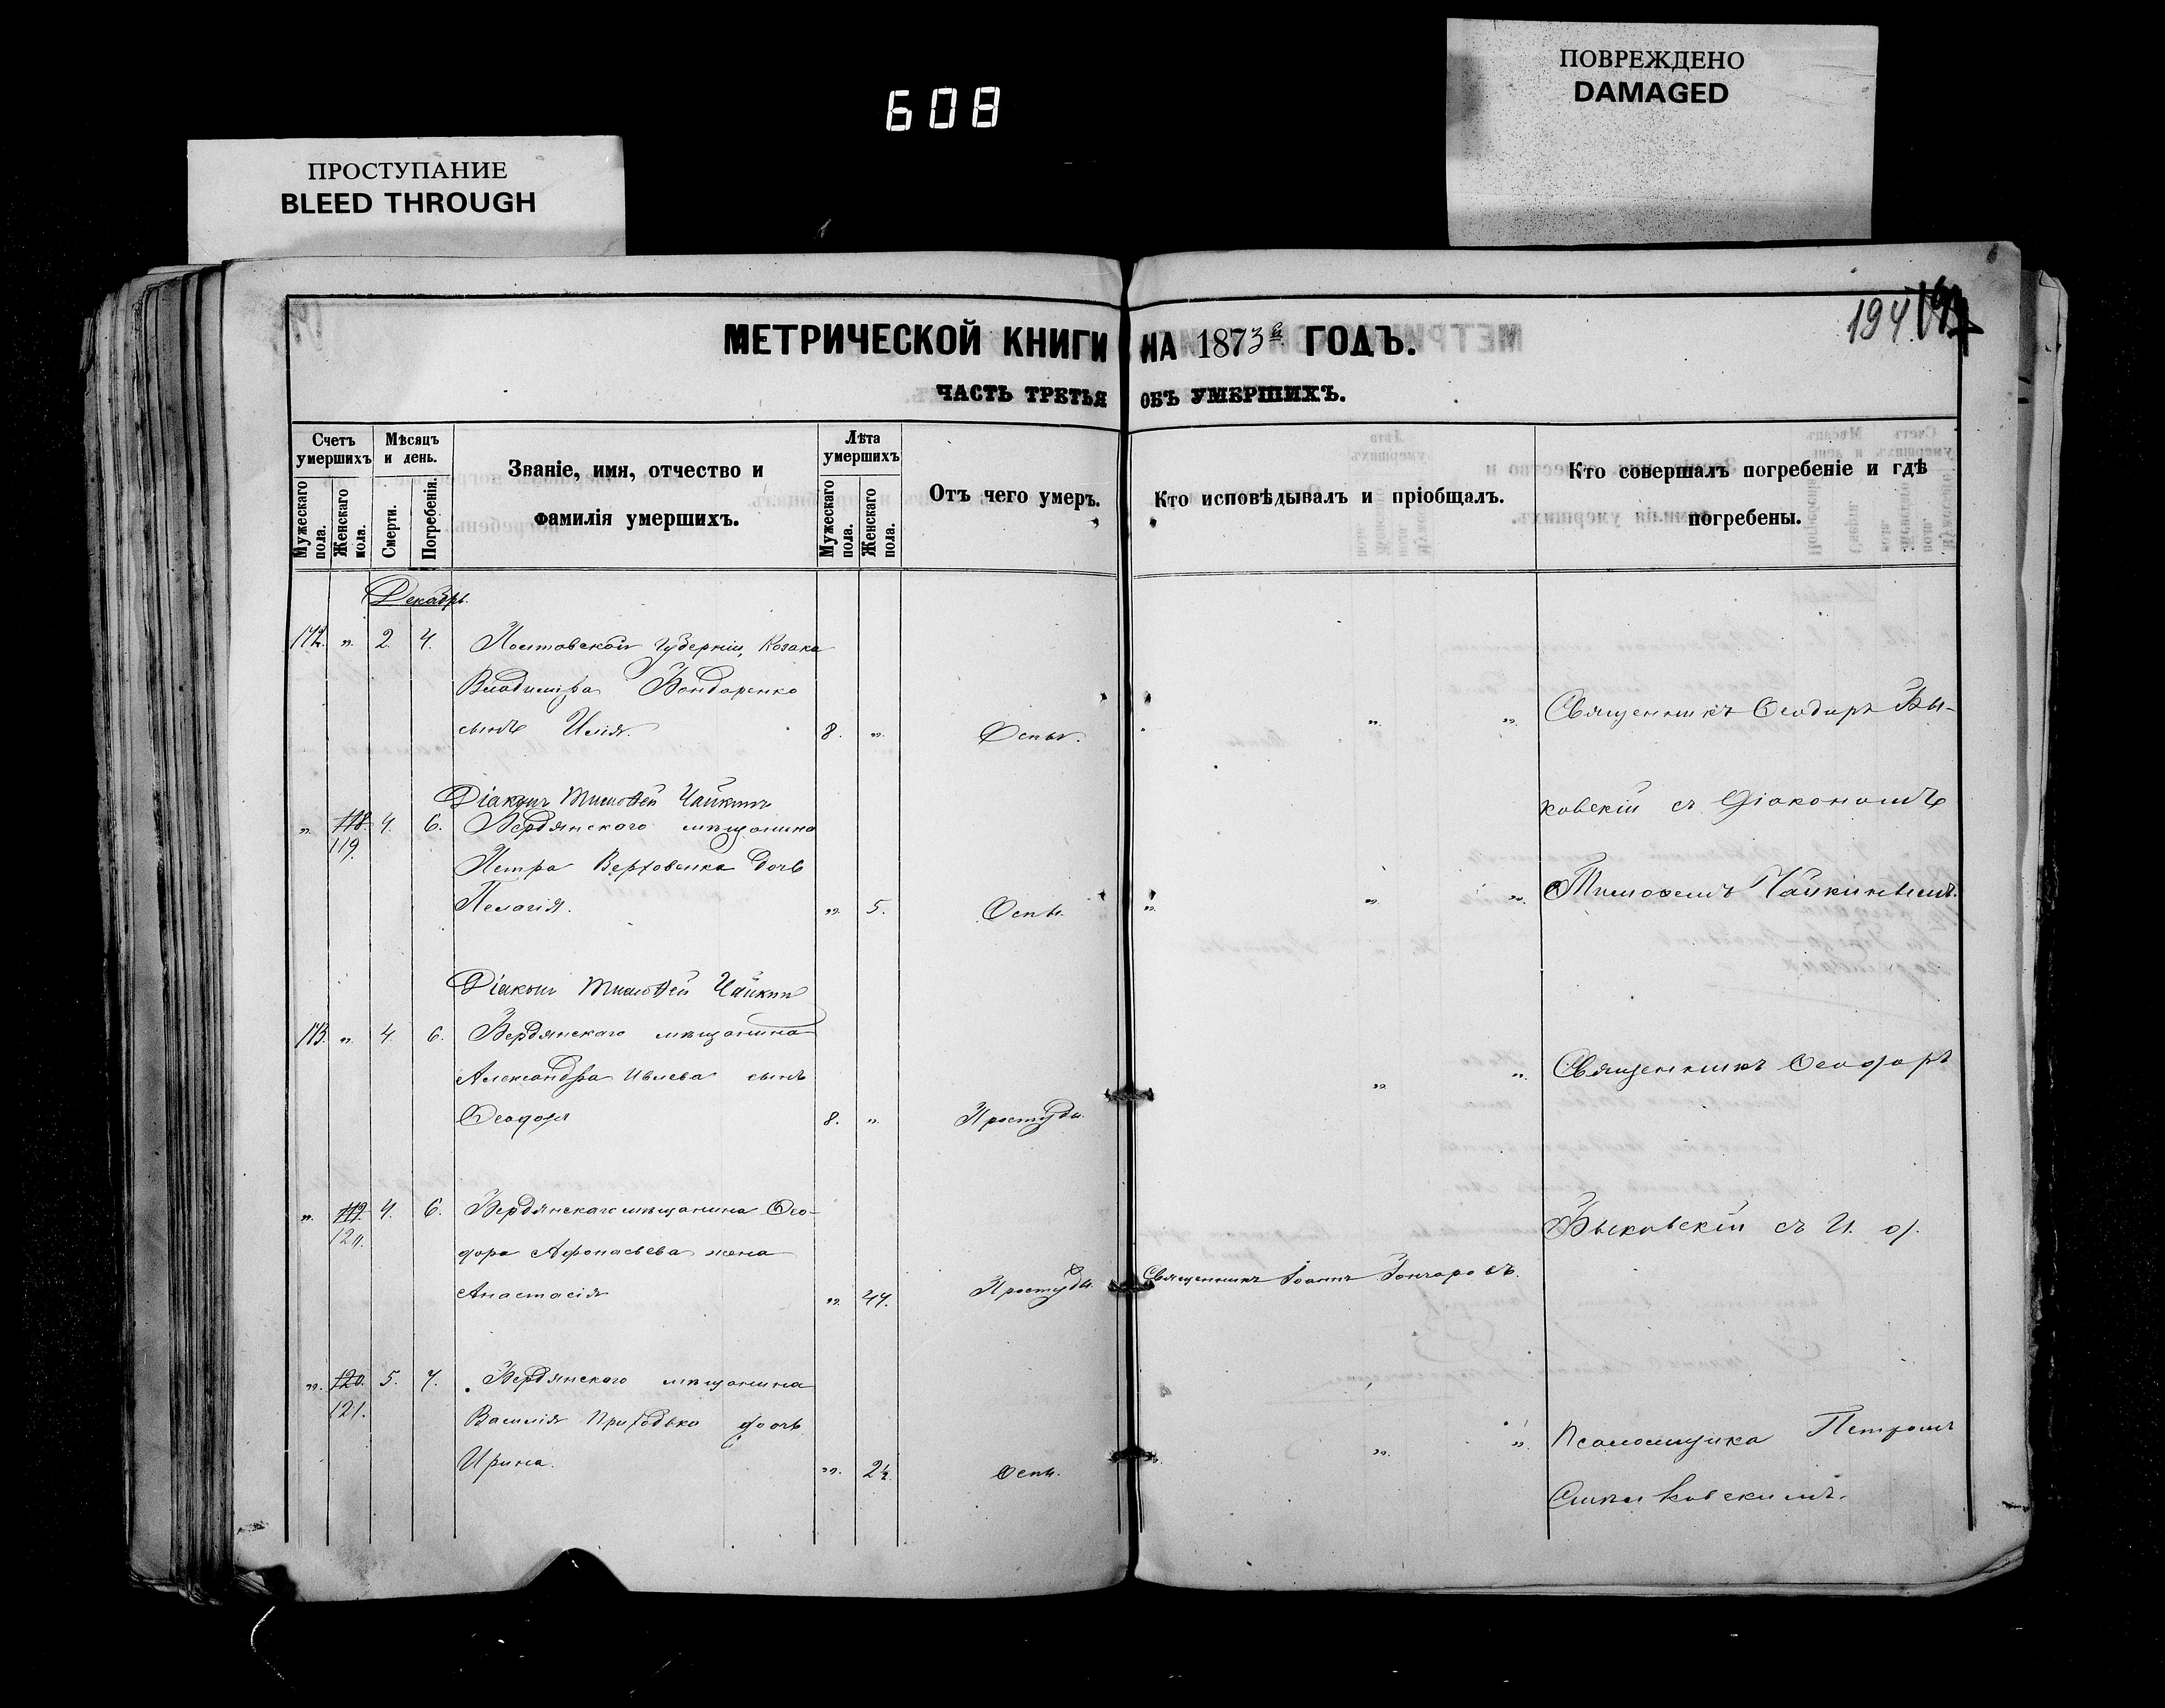 608
ПОВРЕЖДЕНО
DAMAGED
ПРОСТУПАНИЕ
BLEED THROUGH
194
МЕТРИЧЕСКОЙ КНИГИ НА 1873й ГОДЪ.
ЧАСТЬ ТРЕТЬЯ ОБЪ УМЕРШИХЪ.
Счетъ умершихъ
Мужескаго пола.
Женскаго пола.
Мѣсяцъ и день.
Смерти.
Погребенія.
Званіе, имя, отчество и
фамилія умершихъ.
Лѣта умершихъ
Мужескаго пола.
Женскаго пола.
Отъ чего умеръ.
Кто исповѣдывалъ и пріобщалъ.
Кто совершалъ погребеніе и гдѣ
погребены.
Декабрь.
172. „ 2. 4. губерніи, Козака
Владиміра Бондаренко
сынъ Илія. 8. „ Оспы. „ „ Священникъ Ѳеодоръ Бы-
Діаконъ Тимоѳей Чайкинъ
ковскій съ Діакономъ
„ 118. 4. 6. Бердянскаго мѣщанина
119.
Петра Верховенка дочь
Пелагія. „ 5. Оспы. „ „ „ Тимоѳеемъ Чайкинымъ.
Діаконъ Тимоѳей Чайкинъ
173. „ 4. 6. Бердянскаго мѣщанина
Александра Ивлева сынъ „ „ Священникъ Ѳеодоръ
Ѳеодоръ 8. „ Простуды.
„ 119. 4. 6. Бердянскаго мѣщанина Ѳео-
120.
Быковскій съ И. д.
дора Афонасьева жена
Анастасія „ 44. Простуды. Священникъ Іоаннъ Гончаровъ.
„ 120. 5. 7. Бердянскаго мѣщанина
121.
Василія Приходько дочь „ „ Псаломщика Петромъ
Ирина. „ 2½ Оспы.